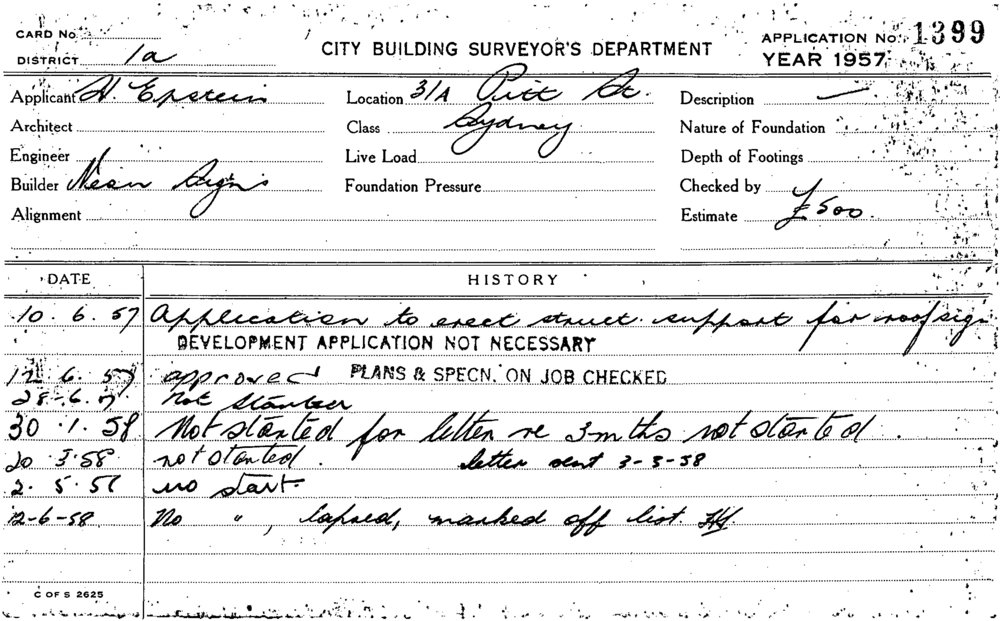 CARD No.
CITY BUILDING SURVEYOR'S DEPARTMENT
APPLICATION No. 1399
DISTRICT 1a
YEAR 1957
Applicant H. Epstein Location 31A Pitt St. Description —
Architect Class Sydney Nature of Foundation
Engineer Live Load Depth of Footings
Builder Neon Signs Foundation Pressure Checked by
Alignment Estimate £500
DATE HISTORY
10. 6. 57 Application to erect struct. support for roof sign
DEVELOPMENT APPLICATION NOT NECESSARY
12. 6. 57 approved PLANS & SPECN. ON JOB CHECKED
28-6. Not started
30.1.58 Not started for letter re 3 mths not started.
20 3.58 not started. letter sent 3-3-58
2. 5. no start
12-6-58 No ", lapsed, marked off list.
C OF S 2625